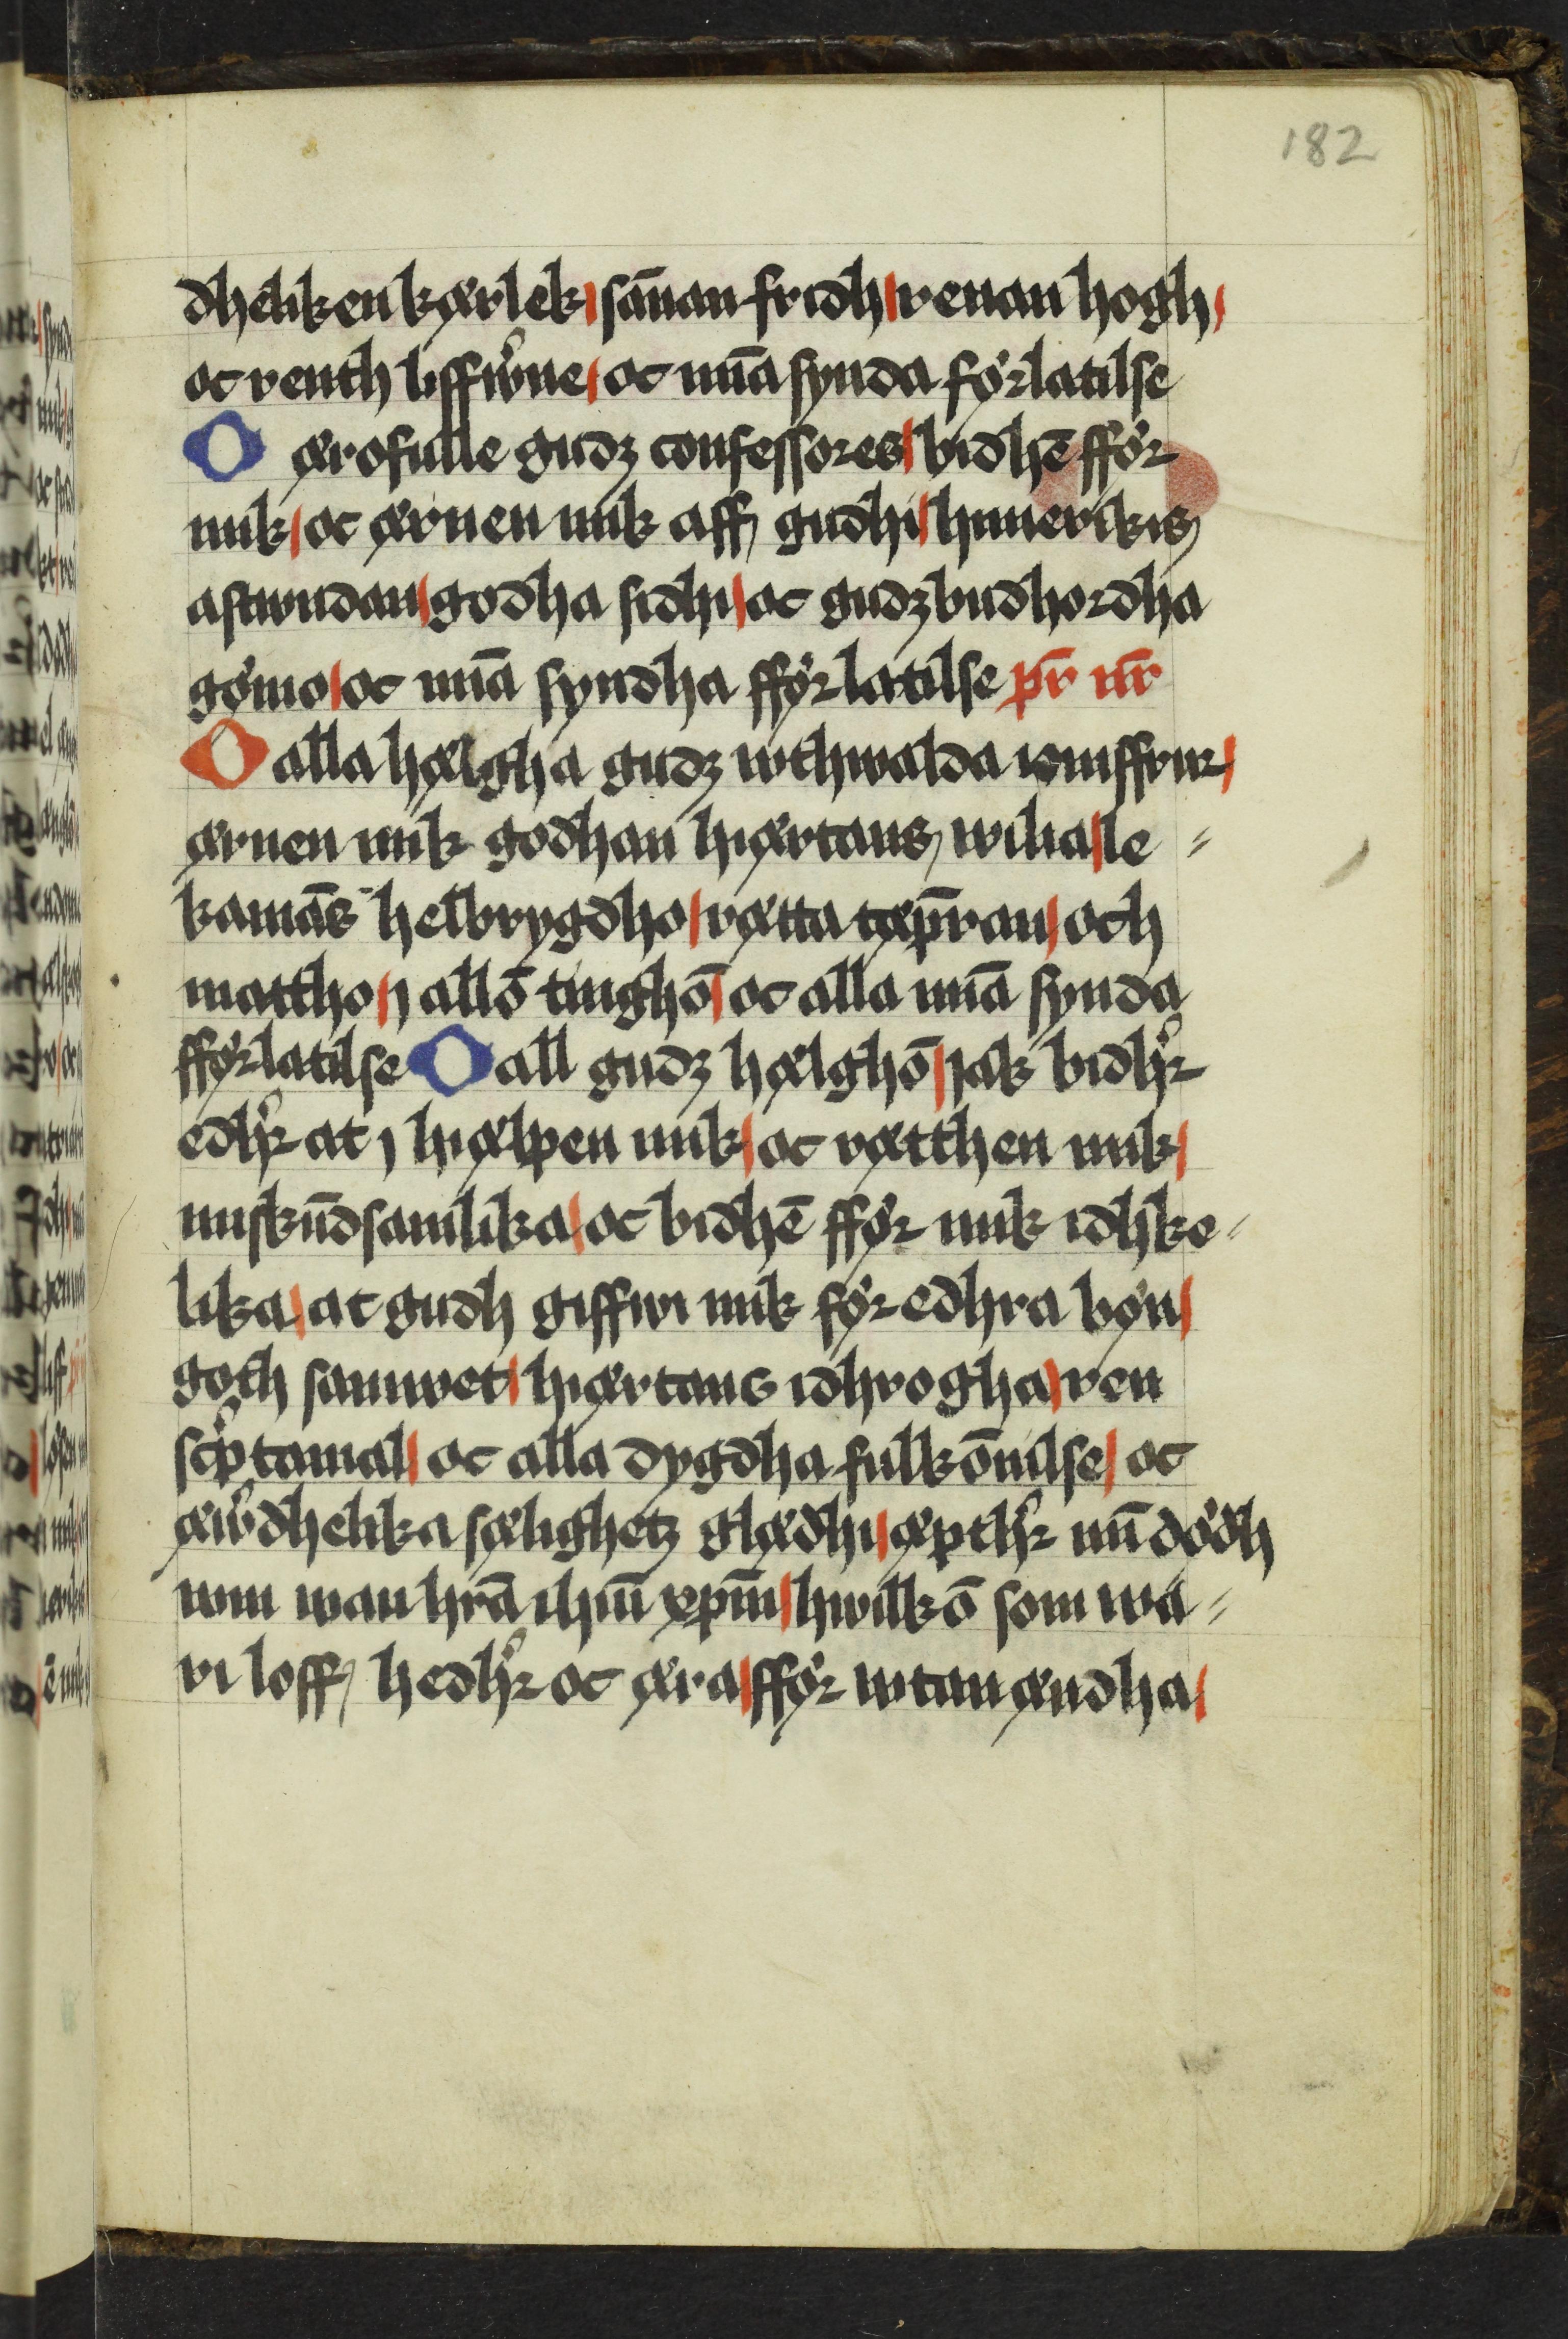 182
dheliken kærlek / sān̄an fridh / renan hogh /
oc renth liffw͛ne / oc mīa synda forlatilse
O ærofulle gudz confessores / bidhē ffor
mik / oc æruen mik aff gudhi / himerikis
astwndan / godha sidhi / oc gudz budhordha
gømo / oc mīa syndha fforlatilse pr̄ nr̄
O alla hælgha gudz wthwalda iomffrur /
æruen mik godhan hiærtans wilia / le=
kamās helbrygdho / rætta tæp̄ran / och
mattho / j allō tinghō / oc alla mīa synda
fforlatilse O all gudz hælghō / jak bidh͛r
edh͛r at j hiælpen mik / oc rætthen mik /
miskūdsamlika / oc bidhē ffor mik idhke=
lika / at gudh giffwi mik for edhra bøn /
goth samwet / hiærtans idhrogha / ren
scͥptamal / oc alla dygdha fulkōnilse / oc
æw͛dhelika sælighetz glædhi / æpth͛r mī dødh
wm wan hrā ihm̄ xpm̄ / hwilkō som wa=
ri loff hedh͛r oc æra / ffor wtan ændha /